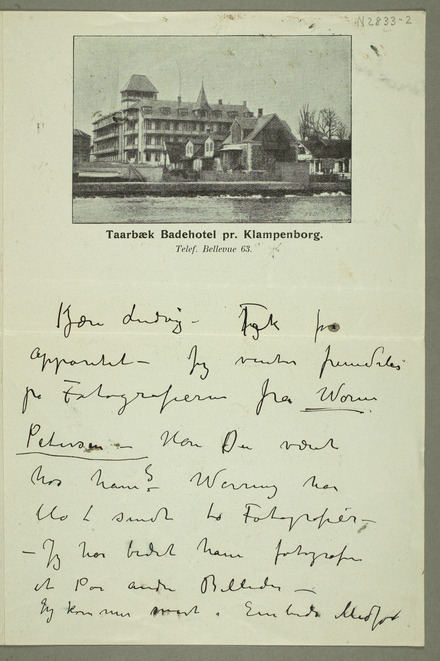 N2833-2
Taarbæk Badehotel pr. Klampenborg.
Telef. Bellevue 63.
Kjære Ludvig - Tryk paa
Apparatet - Jeg venter fremdeles
paa Fotografierne fra Worm
Petersen - Har Du været
hos ham? - Werring har
blot sendt to Fotografier -
- Jeg har bedet ham fotografere
et Par andre Billeder -
Jeg kommer med